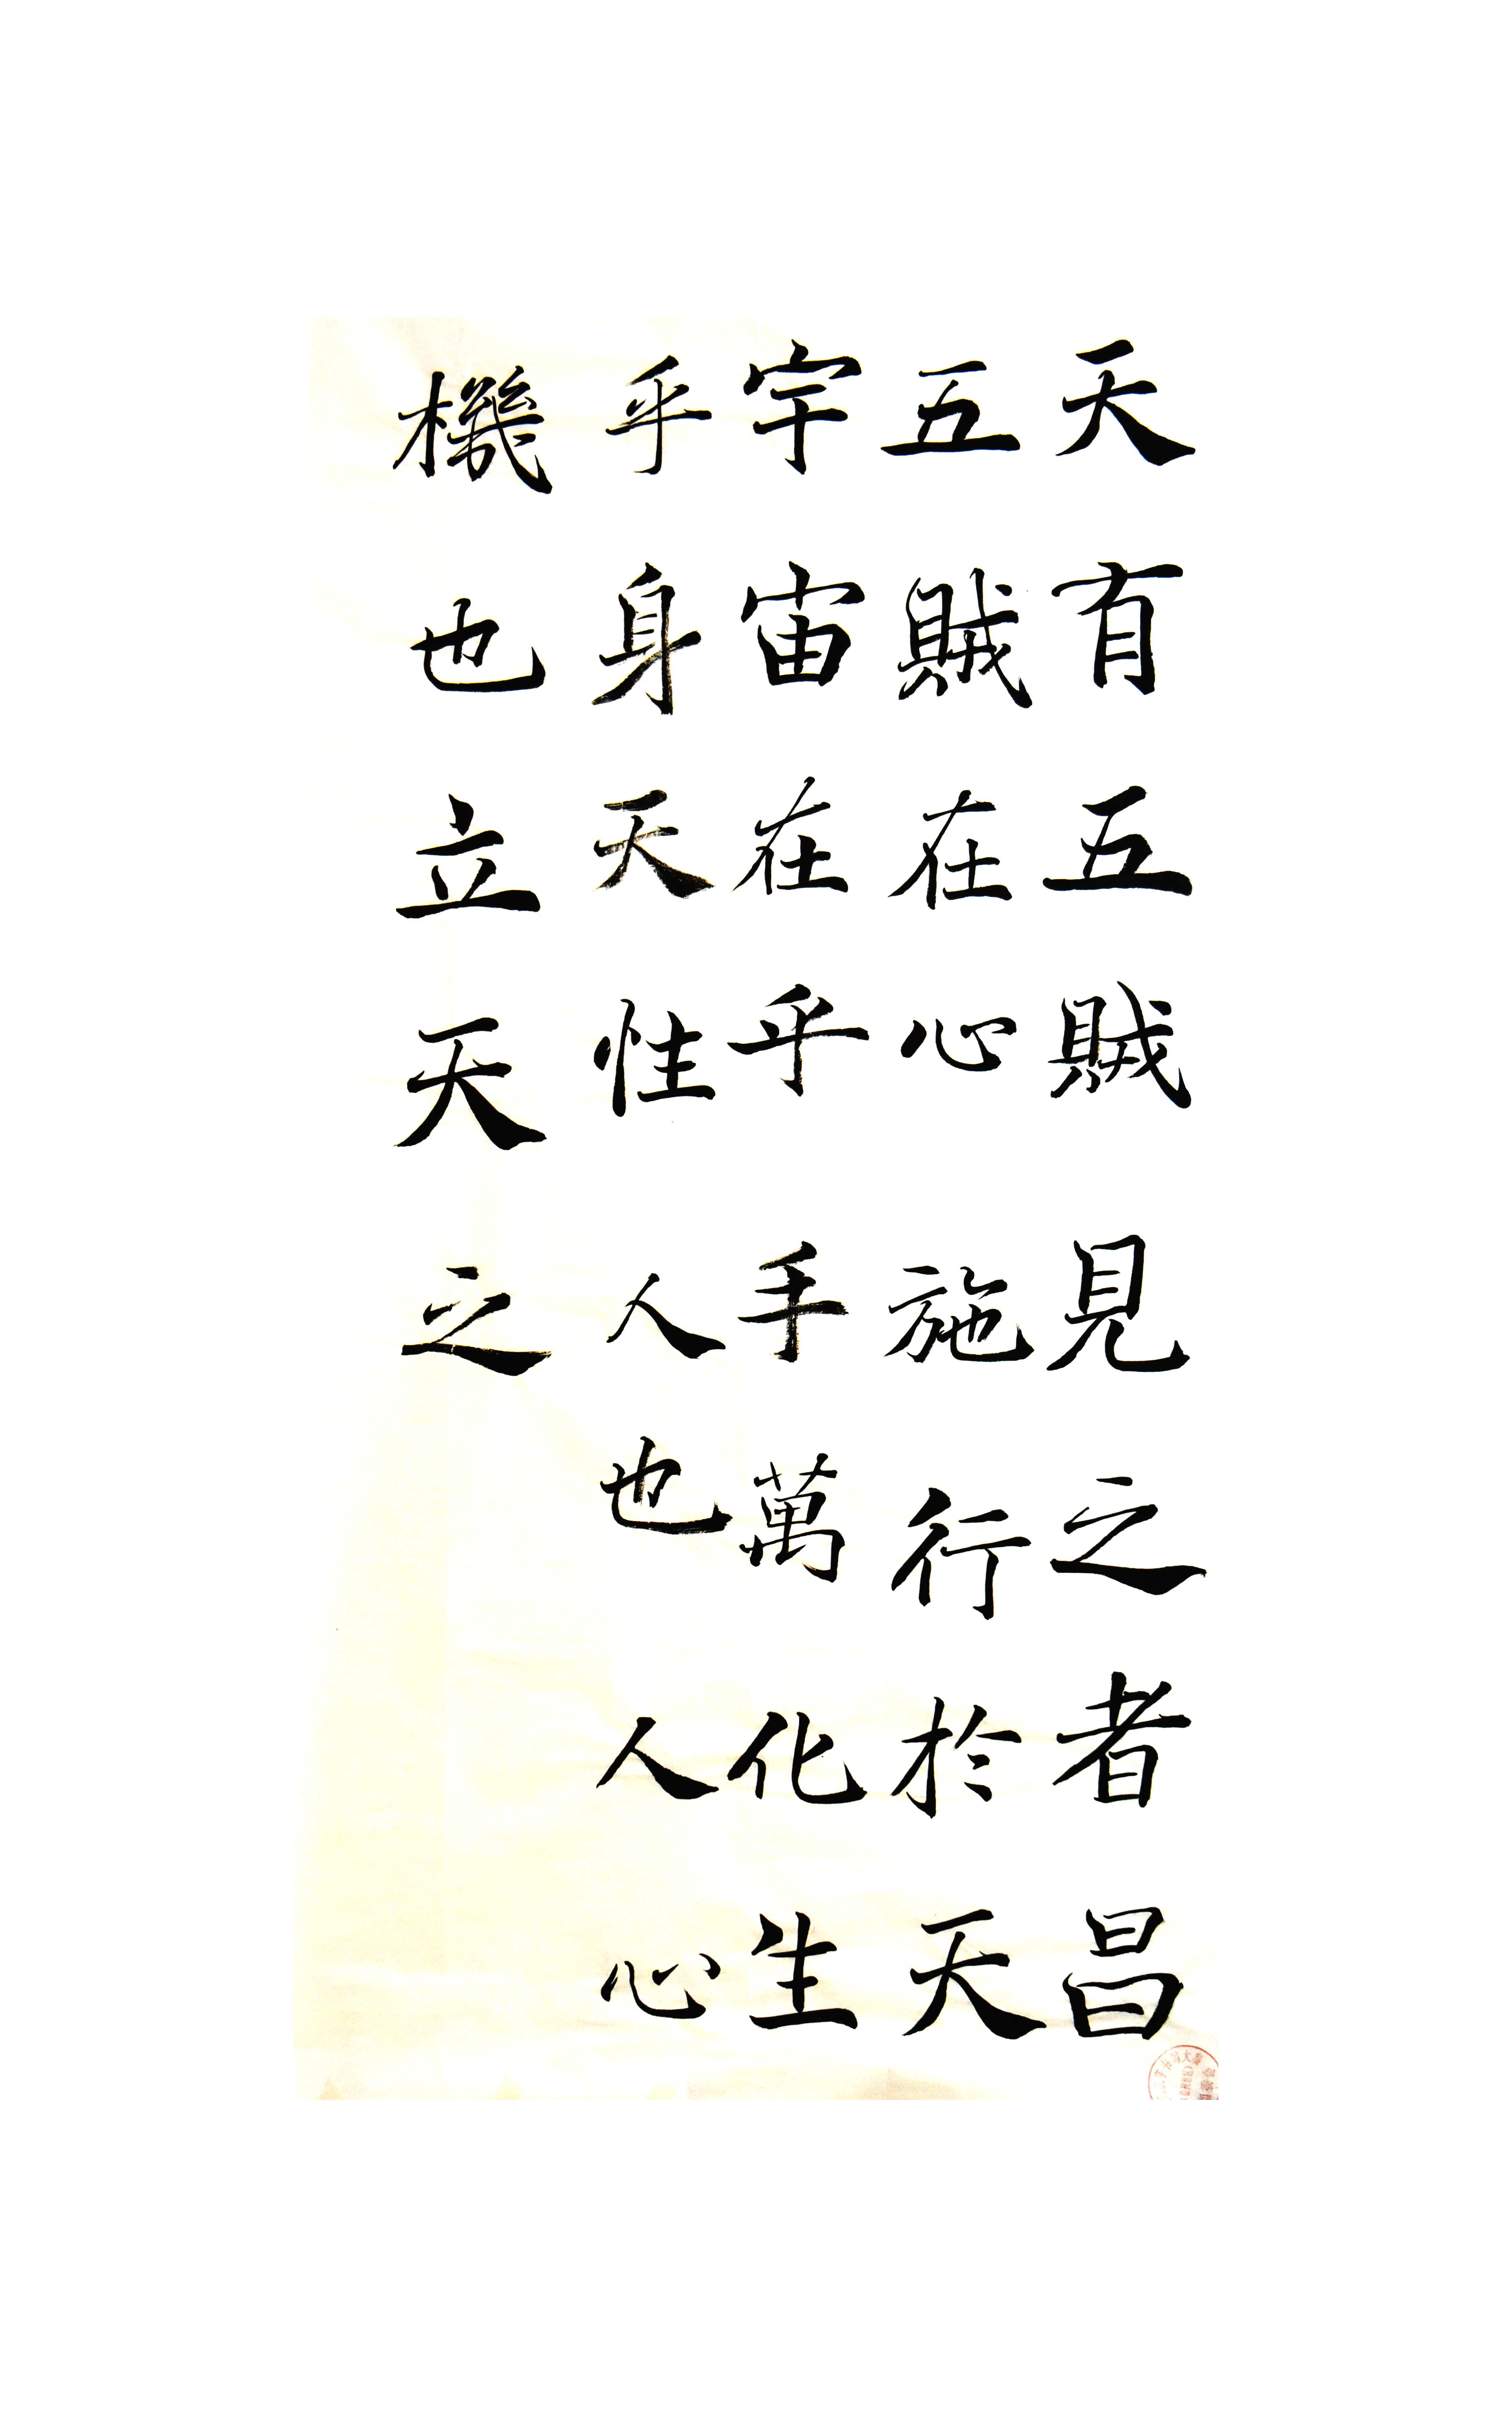 天有五賊見之者昌
五賊在心施行於天
宇宙在乎手萬化生
乎身天性人也人心
機也立天之